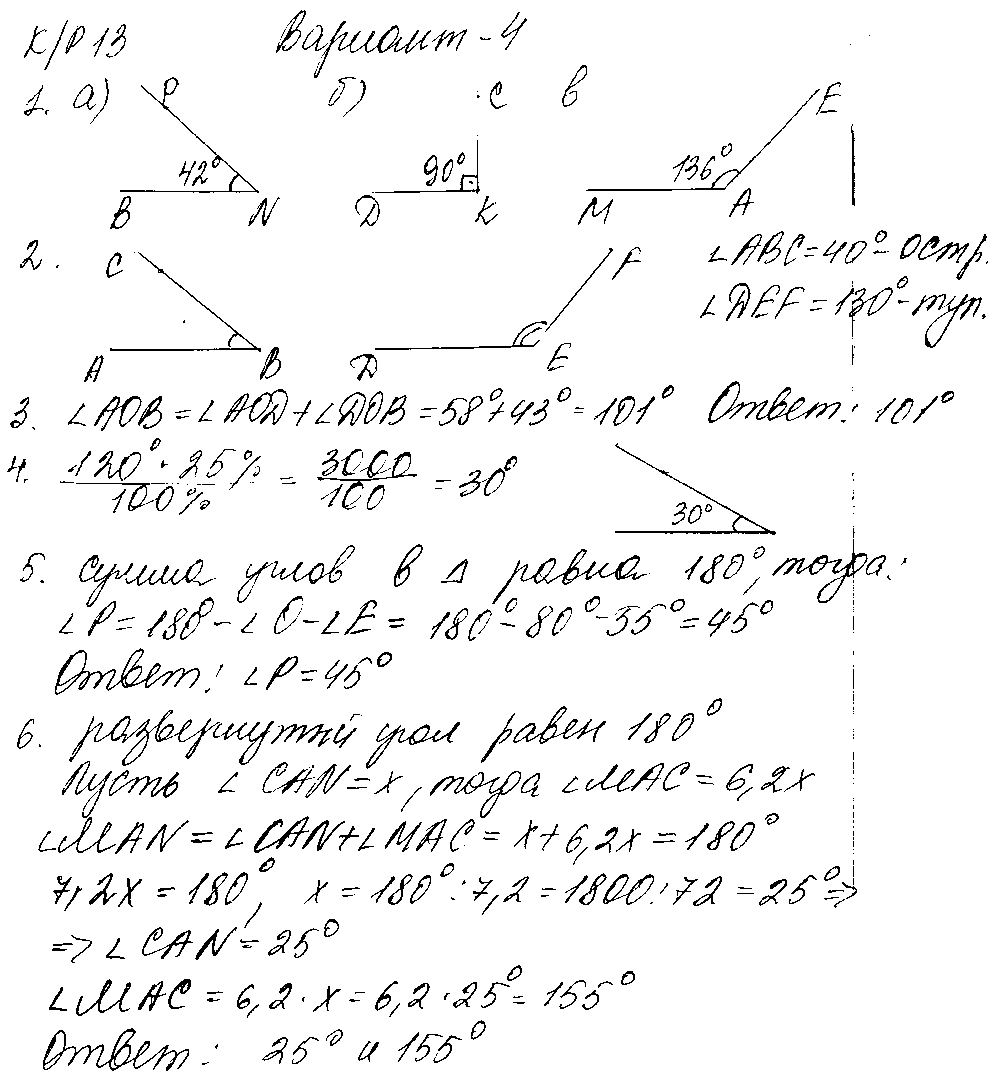 К/Р 13 Вариант - 4
1. а) P б) C в E
42° 90° 136°
B N D K M A
2. C F ∠ABC = 40° - Остр.
∠DEF = 130° - туп.
A B D E
3. ∠AOB = ∠AOD + ∠DOB = 58° + 43° = 101° Ответ: 101°
4. 120° · 25% / 100% = 3000 / 100 = 30° 30°
5. сумма углов в Δ равна 180°, тогда:
∠P = 180° - ∠O - ∠E = 180° - 80° - 55° = 45°
Ответ: ∠P = 45°
6. развернутый угол равен 180°
Пусть ∠CAN = x, тогда ∠MAC = 6,2x
∠MAN = ∠CAN + ∠MAC = x + 6,2x = 180°
7,2x = 180°, x = 180° : 7,2 = 1800 : 72 = 25° =>
=> ∠CAN = 25°
∠MAC = 6,2 · x = 6,2 · 25° = 155°
Ответ: 25° и 155°